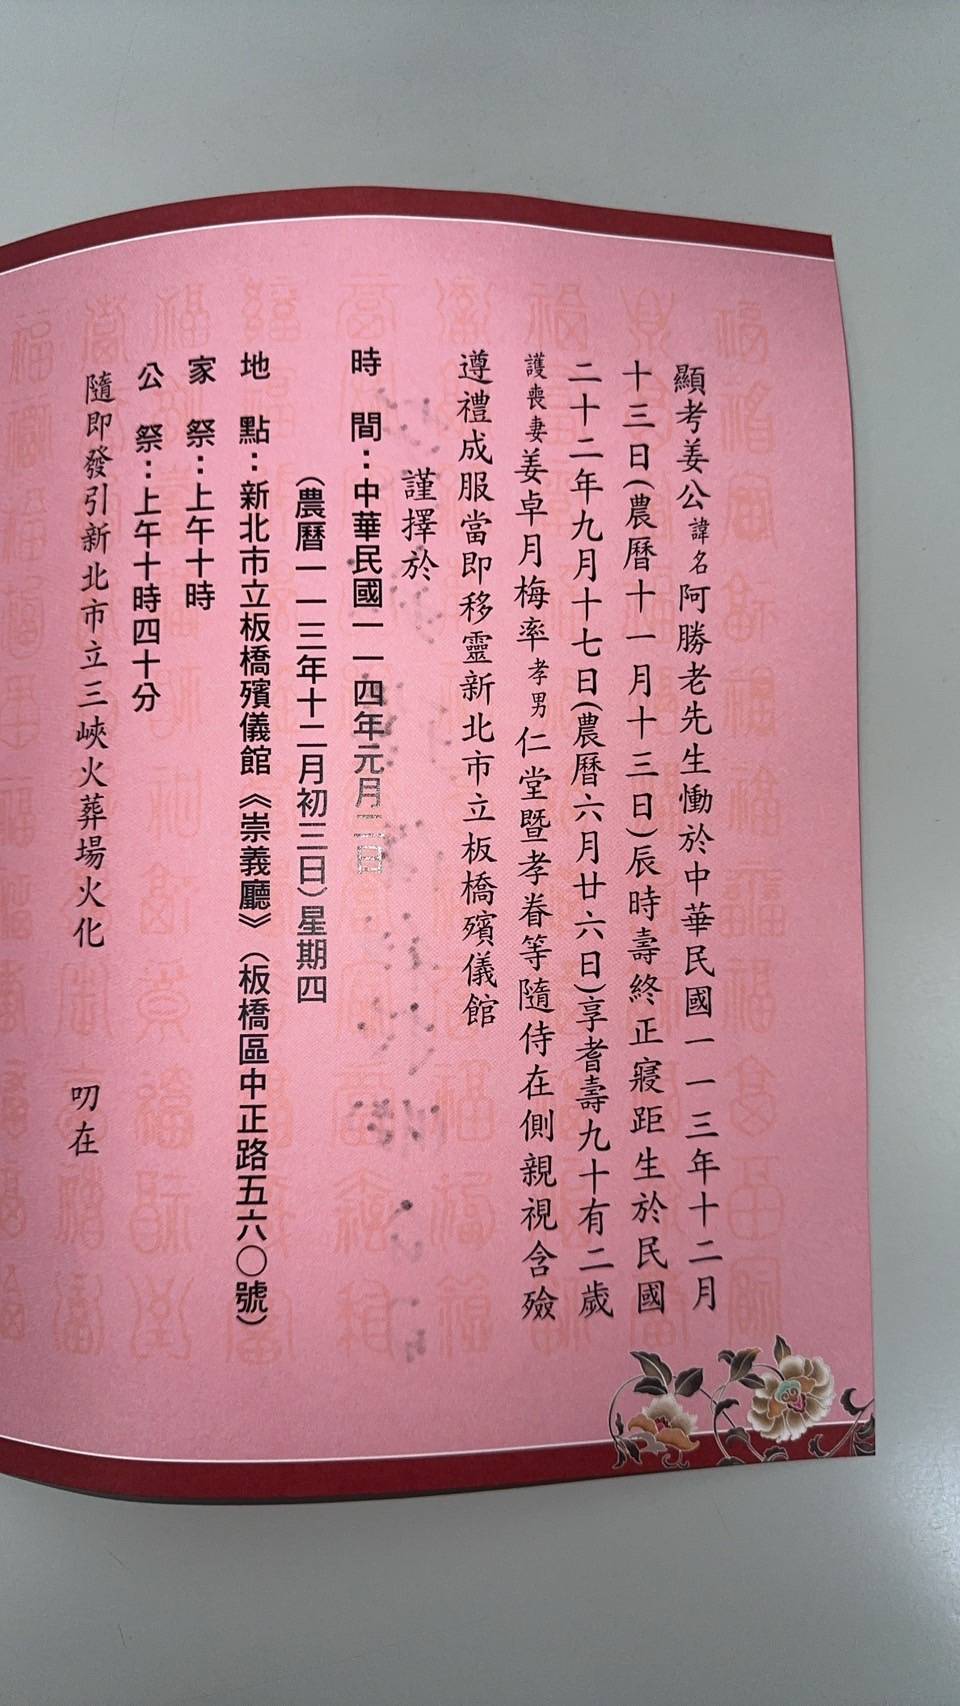 顯考姜公諱名阿勝老先生慟於中華民國一一三年十二月
十三日(農曆十一月十三日)辰時壽終正寢距生於民國
二十二年九月十七日(農曆六月廿六日)享耆壽九十有二歲
護喪妻姜卓月梅率孝男仁堂暨孝眷等隨侍在側親視含殮
遵禮成服當即移靈新北市立板橋殯儀館
謹擇於
時　間：中華民國一一四年元月二日
（農曆一一三年十二月初三日）星期四
地　點：新北市立板橋殯儀館《崇義廳》（板橋區中正路五六○號）
家　祭：上午十時
公　祭：上午十時四十分
隨即發引新北市立三峽火葬場火化　叨在